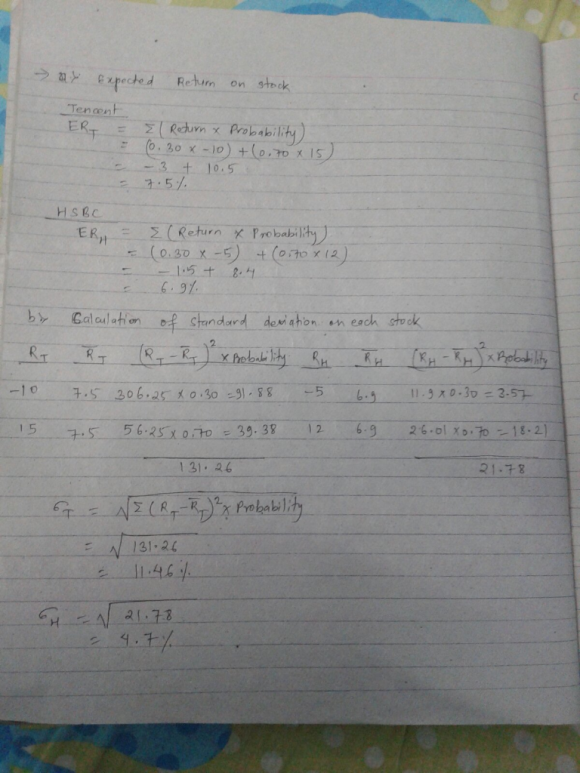 → a) Expected Return on stock
Tencent
ER_T = Σ(Return x Probability)
= (0.30 x -10) + (0.70 x 15)
= -3 + 10.5
= 7.5%
HSBC
ER_H = Σ(Return x Probability)
= (0.30 x -5) + (0.70 x 12)
= -1.5 + 8.4
= 6.9%
b) Calculation of standard deviation on each stock
R_T R̄_T (R_T - R̄_T)² x Probability R_H R̄_H (R_H - R̄_H)² x Probability
-10 7.5 306.25 x 0.30 = 91.88 -5 6.9 11.9 x 0.30 = 3.57
15 7.5 56.25 x 0.70 = 39.38 12 6.9 26.01 x 0.70 = 18.21
131.26 21.78
σ_T = √Σ(R_T - R̄_T)² x Probability
= √131.26
= 11.46%
σ_H = √21.78
= 4.7%